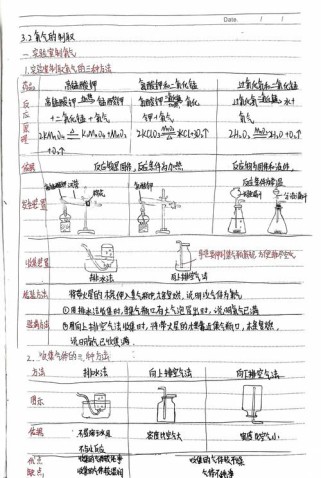 Date. / /
3.2 氧气的制取
一 实验室制氧气
1. 实验室制取氧气的三种方法
药品 高锰酸钾 氯酸钾和二氧化锰 过氧化氢和二氧化锰
反应原理 高锰酸钾 加热 锰酸钾 氯酸钾 氯化 过氧化氢 水+
+二氧化锰+氧气 钾+氧气 氧气
2KMnO₄ △ K₂MnO₄+MnO₂ 2KClO₃ MnO₂ △ 2KCl+3O₂↑ 2H₂O₂ MnO₂ 2H₂O+O₂↑
+O₂↑
依据 反应物是固体,反应条件为加热 反应物为固体和液体,
反应条件为常温
发生装置 氯酸钾
收集装置
排水法 向上排空气法
检验方法 将带火星的木条伸入集气瓶中,木条复燃,说明收集气体为氧气
验满方法 ①用排水法收集时,集气瓶口有大气泡冒出时,说明氧气已满
②用向上排空气法收集时,将带火星的木条靠近集气瓶口,木条复燃,
说明氧气已收集满.
2. 收集气体的三种方法
方法 排水法 向上排空气法 向下排空气法
图示
依据 不易溶于水且 密度比空气大 密度比空气小
不与水反应
优点 收集的气体较纯净 收集的气体较干燥
缺点 收集的气体较潮湿 气体不纯净